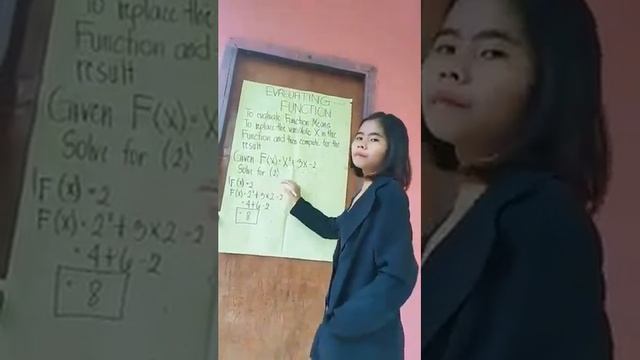 EVALUATING
FUNCTION
To evaluate Function Means
To replace the variable X in the
Function and then compute for the
result
Given F(x) = x²+3x-2
Solve for (2)
F(x) = 2
F(x) = 2²+3x2-2
= 4+6-2
= 8